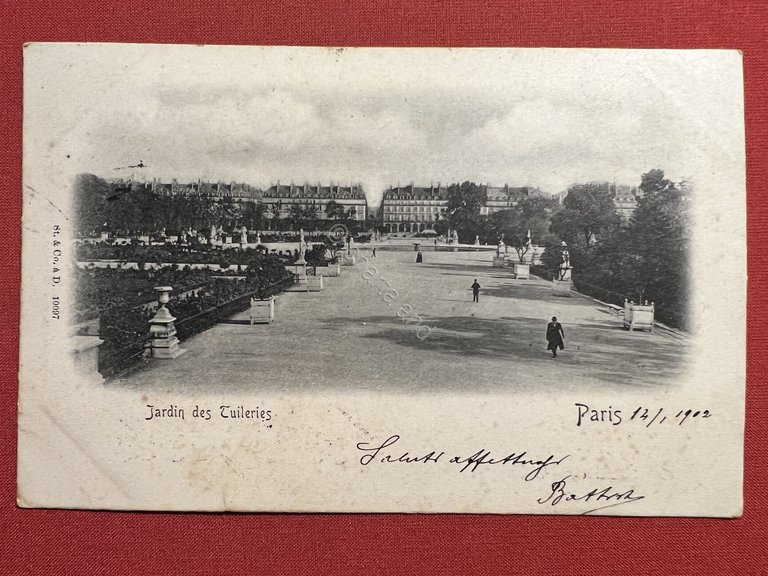 St. & Co. à D. 10097
Jardin des Tuileries
Paris 14/1 1902
Saluti affettuosi